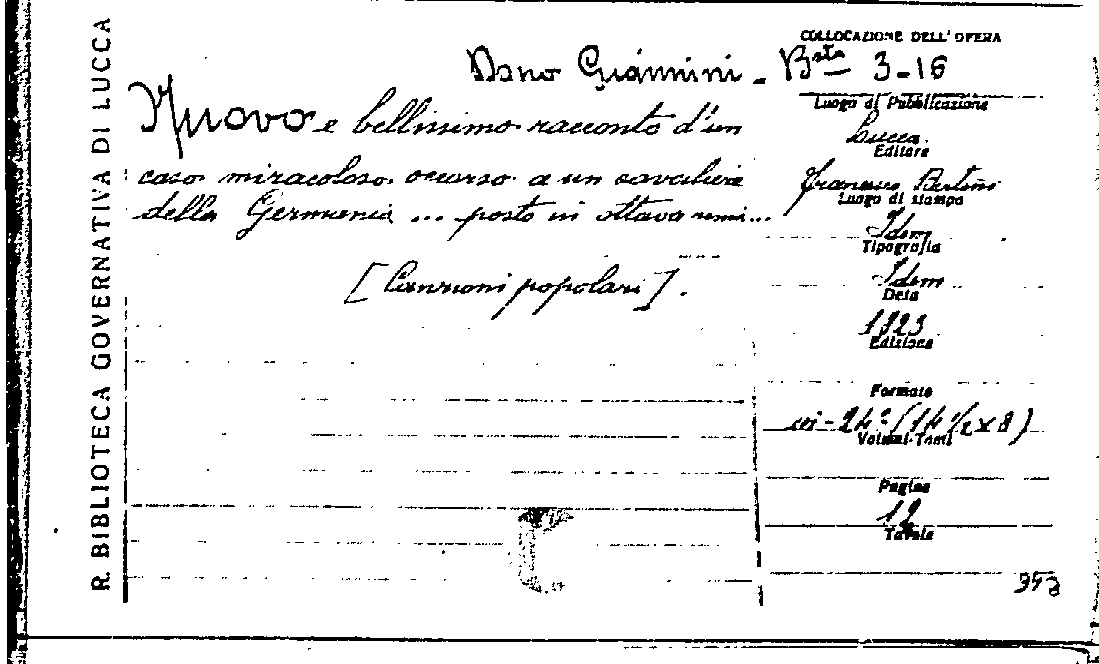 R. BIBLIOTECA GOVERNATIVA DI LUCCA
COLLOCAZIONE DELL'OPERA
Dono Giannini - Bsta 3-16
Nuovo e bellissimo racconto d'un
caso miracoloso occorso a un cavaliere
della Germania ... posto in ottava rima...
[Canzoni popolari].
Luogo di Pubblicazione
Lucca
Editore
Francesco Bertini
Luogo di stampa
Idem
Tipografia
Idem
Data
1823
Edizione
Formato
in-24° (14 1/2 x 8)
Volumi-Tomi
Pagine
12
Tavole